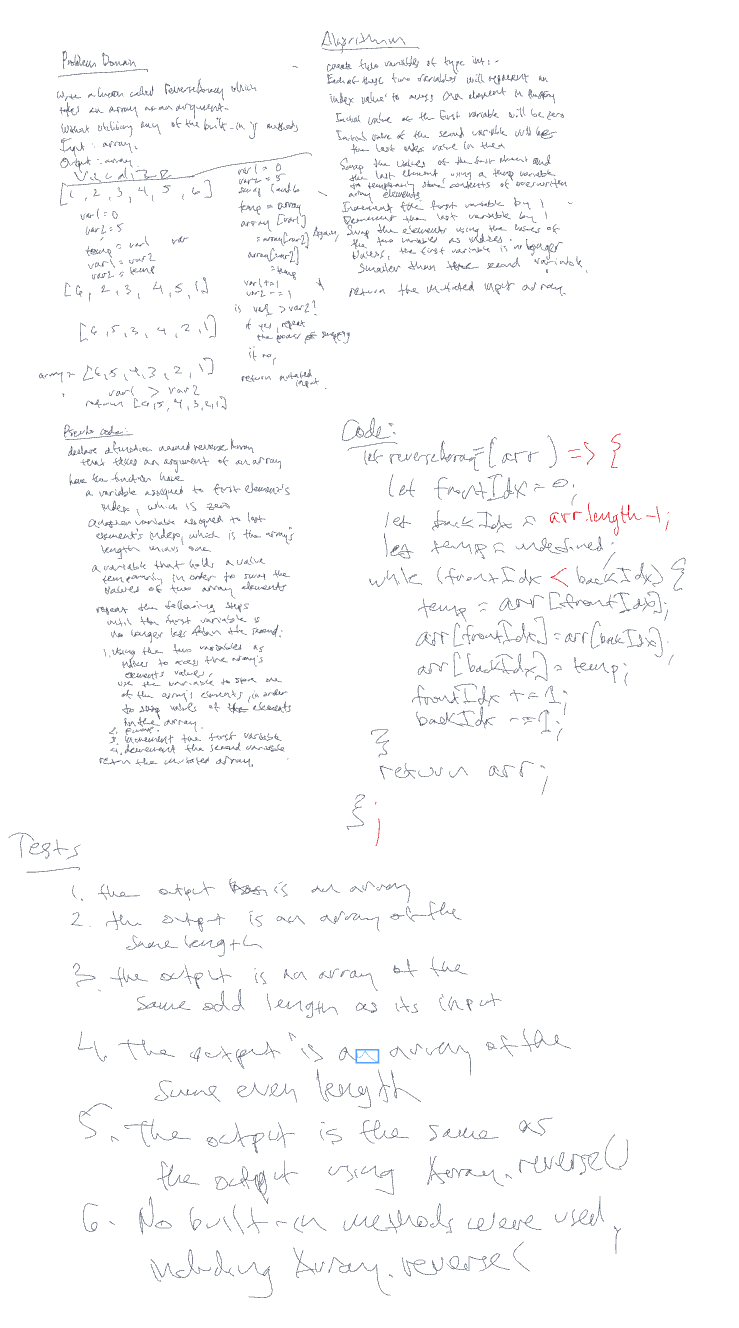 Problem Domain
Write a function called reverseArray which
takes an array as an argument.
Without utilizing any of the built-in js methods
Input: array.
Output: array
Visual
[1, 2, 3, 4, 5, 6]
var1 = 0
var2 = 5
temp = var1 var
var1 = var2
var2 = temp
[6, 2, 3, 4, 5, 1]
[6, 5, 3, 4, 2, 1]
array = [6, 5, 4, 3, 2, 1]
var1 > var2
return [6, 5, 4, 3, 2, 1]
var1 = 0
var2 = 5
swap 1 and 6
temp = array
array [var1]
= array[var2]
array[var2]
= temp
var1 += 1
var2 -= 1
is var1 > var2?
if yes, repeat
the process of swapping
if no,
return mutated
input
Algorithm
create two variables of type int:
Each of these two variables will represent an
index value to access an element in the array
Initial value of the first variable will be zero
Initial value of the second variable will be
the last index value in the
Swap the values of the first element and
the last element using a temp variable
to temporarily store contents of overwritten
array elements
Increment the first variable by 1
Decrement the last variable by 1
Again, swap the elements using the values of
the two variables as indices.
Unless, the first variable is no longer
smaller than the second variable.
return the mutated input array.
Pseudo code:
declare a function named reverse Array
that takes an argument of an array
have the function have
a variable assigned to first element's
index, which is zero
another variable assigned to last
element's index, which is the array's
length minus one
a variable that holds a value
temporarily in order to swap the
values of two array elements
repeat the following steps
until the first variable is
no longer less than the second:
1. Using the two variables as
indices to access the array's
elements values,
use the variable to store one
of the array's elements, in order
to swap values of the elements
in the array.
3. increment the first variable
4. decrement the second variable
return the mutated array.
Code:
let reverseArray = (arr) => {
let frontIdx = 0;
let backIdx = arr.length-1;
let temp = undefined;
while (frontIdx < backIdx) {
temp = arr[frontIdx];
arr[frontIdx] = arr[backIdx];
arr[backIdx] = temp;
frontIdx += 1;
backIdx -= 1;
}
return arr;
};
Tests
1. the output is an array
2. the output is an array of the
same length
3. the output is an array of the
same odd length as its input
4. The output is an array of the
same even length
5. The output is the same as
the output using Array.reverse()
6. No built-in methods were used,
including Array.reverse(